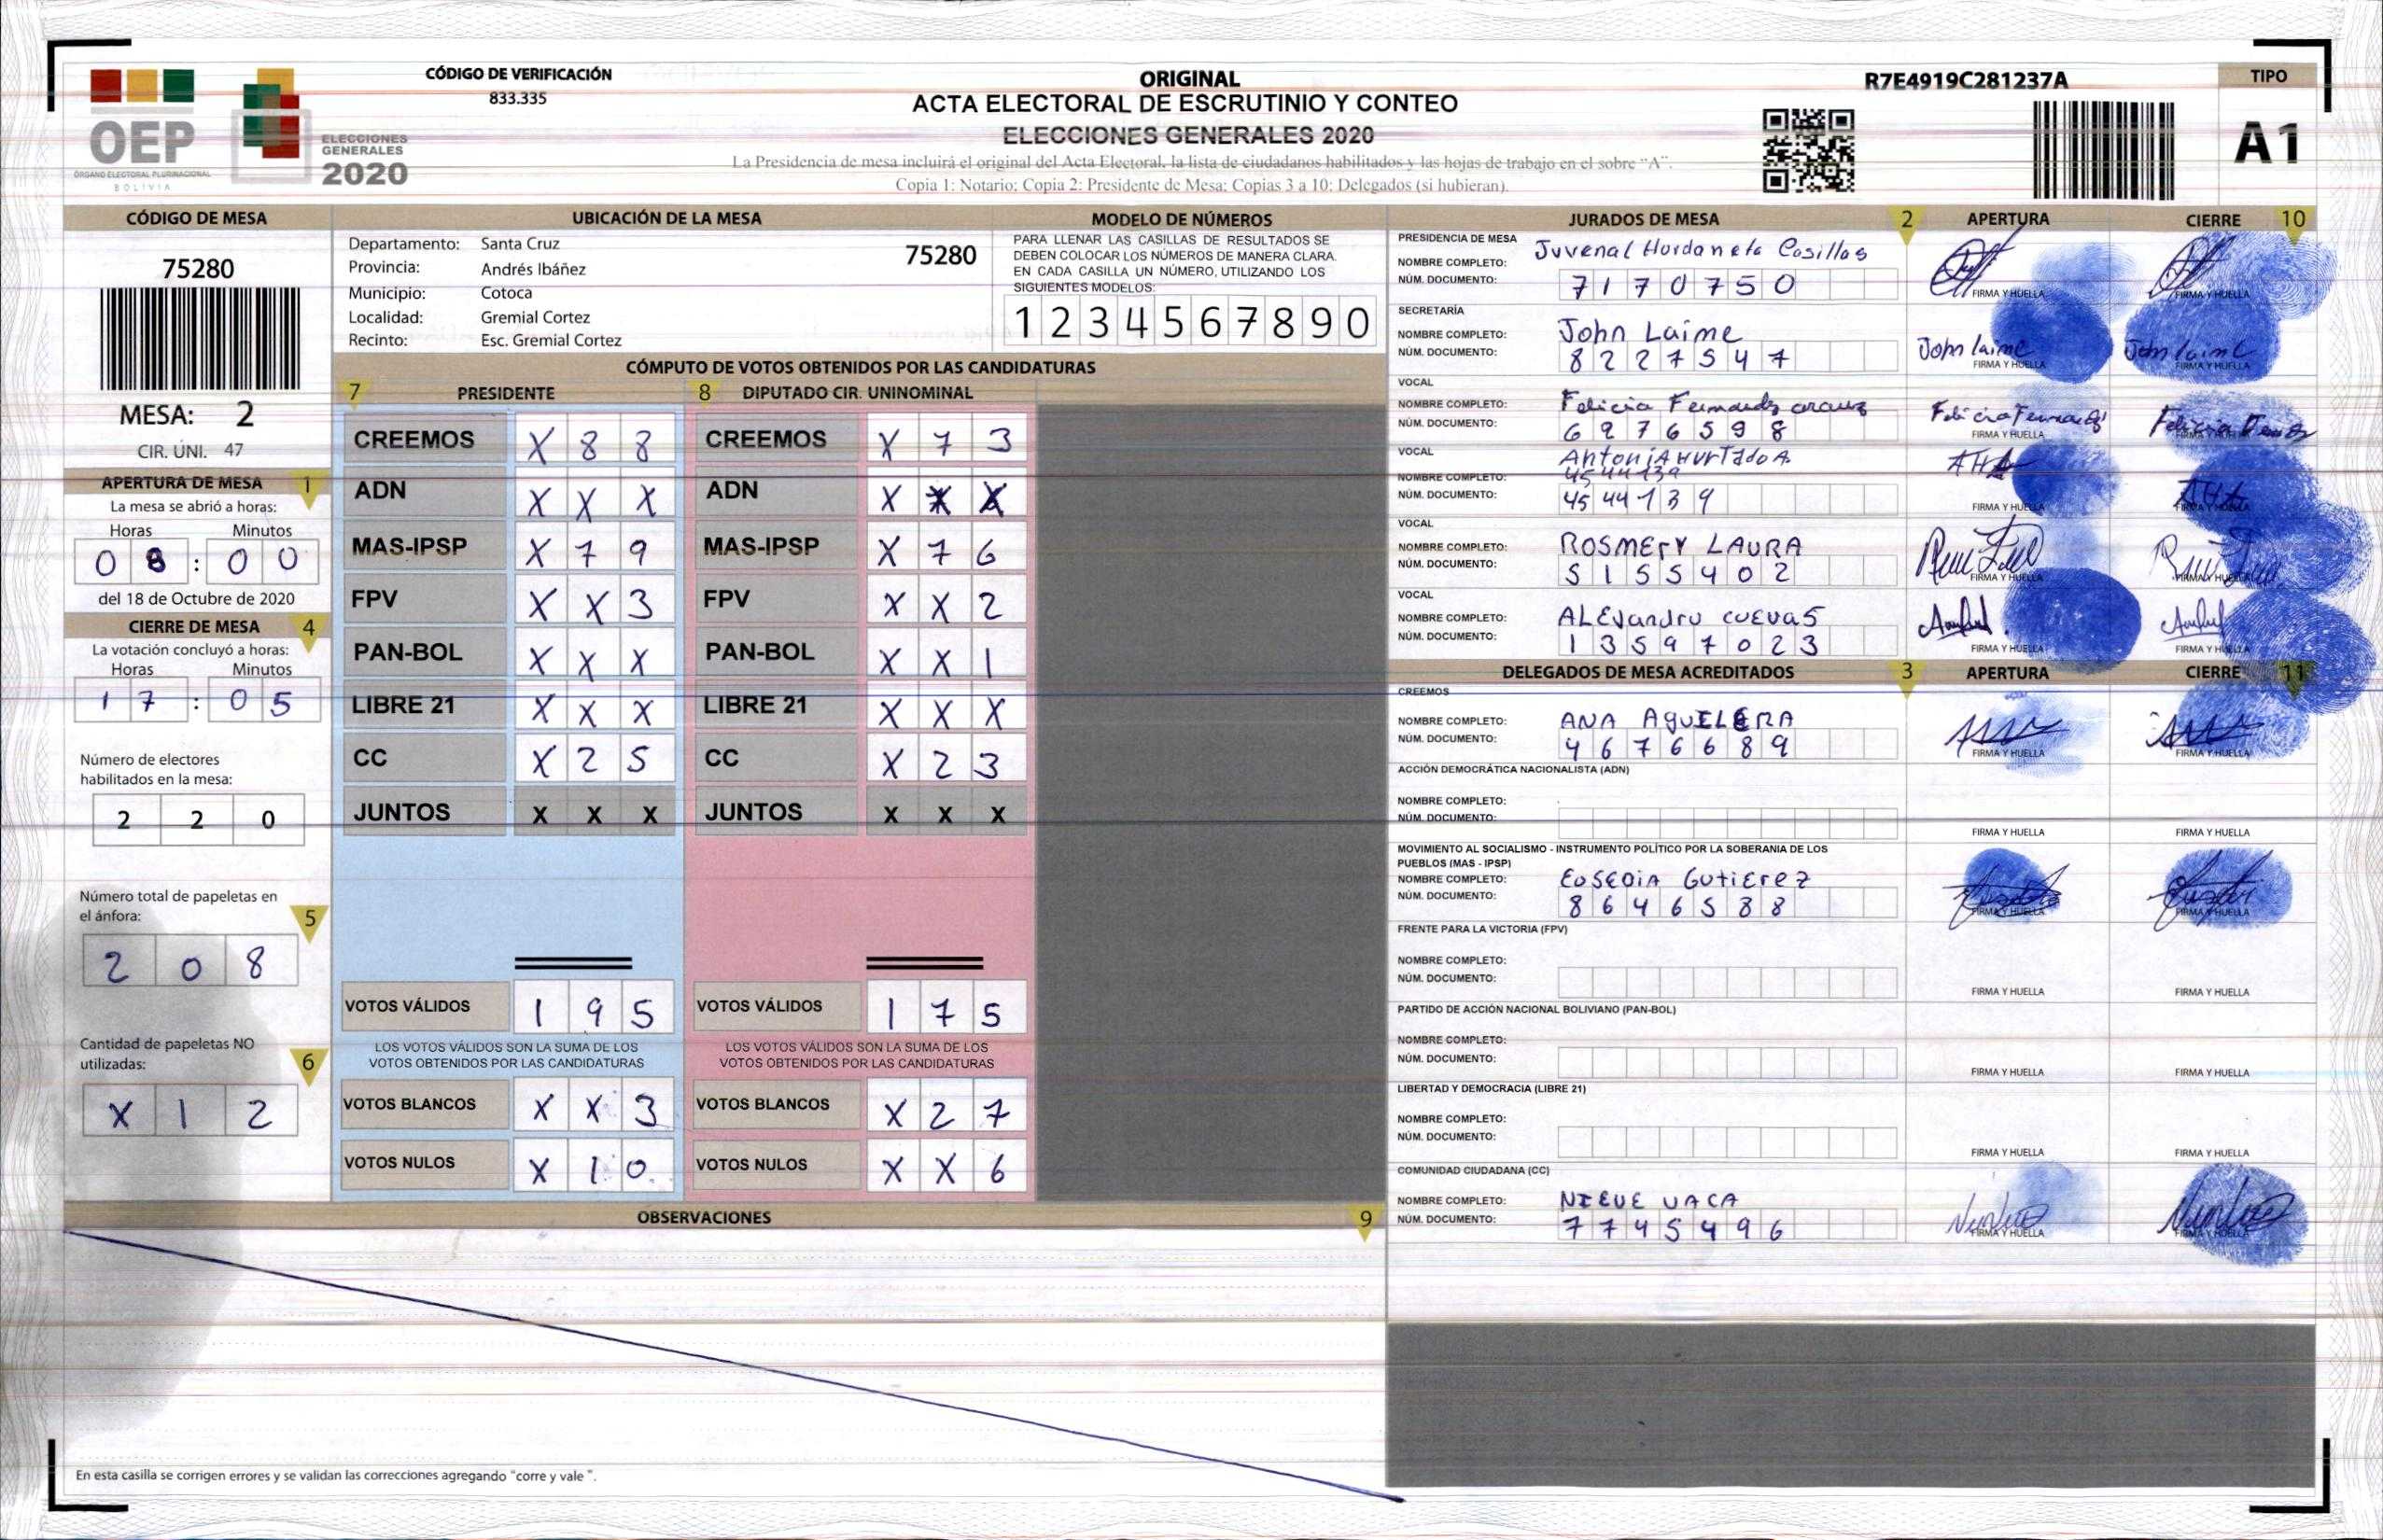 CÓDIGO DE VERIFICACIÓN
833.335
ORIGINAL
ACTA ELECTORAL DE ESCRUTINIO Y CONTEO
ELECCIONES GENERALES 2020
La Presidencia de mesa incluirá el original del Acta Electoral, la lista de ciudadanos habilitados y las hojas de trabajo en el sobre "A".
Copia 1: Notario; Copia 2: Presidente de Mesa; Copias 3 a 10: Delegados (si hubieran).
R7E4919C281237A
TIPO
A1
OEP
ÓRGANO ELECTORAL PLURINACIONAL
BOLIVIA
ELECCIONES
GENERALES
2020
CÓDIGO DE MESA
75280
MESA: 2
CIR. UNI. 47
APERTURA DE MESA 1
La mesa se abrió a horas:
Horas Minutos
0 8 : 0 0
del 18 de Octubre de 2020
CIERRE DE MESA 4
La votación concluyó a horas:
Horas Minutos
1 7 : 0 5
Número de electores
habilitados en la mesa:
2 2 0
Número total de papeletas en
el ánfora: 5
2 0 8
Cantidad de papeletas NO
utilizadas: 6
X 1 2
UBICACIÓN DE LA MESA
Departamento: Santa Cruz 75280
Provincia: Andrés Ibáñez
Municipio: Cotoca
Localidad: Gremial Cortez
Recinto: Esc. Gremial Cortez
MODELO DE NÚMEROS
PARA LLENAR LAS CASILLAS DE RESULTADOS SE
DEBEN COLOCAR LOS NÚMEROS DE MANERA CLARA.
EN CADA CASILLA UN NÚMERO, UTILIZANDO LOS
SIGUIENTES MODELOS:
1 2 3 4 5 6 7 8 9 0
CÓMPUTO DE VOTOS OBTENIDOS POR LAS CANDIDATURAS
7 PRESIDENTE 8 DIPUTADO CIR. UNINOMINAL
CREEMOS X 8 8 CREEMOS X 7 3
ADN X X X ADN X X X
MAS-IPSP X 7 9 MAS-IPSP X 7 6
FPV X X 3 FPV X X 2
PAN-BOL X X X PAN-BOL X X 1
LIBRE 21 X X X LIBRE 21 X X X
CC X 2 5 CC X 2 3
JUNTOS X X X JUNTOS X X X
VOTOS VÁLIDOS 1 9 5 VOTOS VÁLIDOS 1 7 5
LOS VOTOS VÁLIDOS SON LA SUMA DE LOS LOS VOTOS VÁLIDOS SON LA SUMA DE LOS
VOTOS OBTENIDOS POR LAS CANDIDATURAS VOTOS OBTENIDOS POR LAS CANDIDATURAS
VOTOS BLANCOS X X 3 VOTOS BLANCOS X 2 7
VOTOS NULOS X 1 0 VOTOS NULOS X X 6
OBSERVACIONES 9
En esta casilla se corrigen errores y se validan las correcciones agregando "corre y vale ".
JURADOS DE MESA 2 APERTURA CIERRE 10
PRESIDENCIA DE MESA
NOMBRE COMPLETO: Juvenal Casillas
NÚM. DOCUMENTO: 7 1 7 0 7 5 0
FIRMA Y HUELLA FIRMA Y HUELLA
SECRETARÍA
NOMBRE COMPLETO: John Laime
NÚM. DOCUMENTO: 8 2 2 7 5 4 7
John laime John laime
FIRMA Y HUELLA FIRMA Y HUELLA
VOCAL
NOMBRE COMPLETO: Felicia
NÚM. DOCUMENTO: 6 2 7 6 5 9 8
FIRMA Y HUELLA FIRMA Y HUELLA
VOCAL
AntoniA HurTAdo A.
NOMBRE COMPLETO: 4544139
NÚM. DOCUMENTO: 45 44 1 3 9
AHA AHA
FIRMA Y HUELLA FIRMA Y HUELLA
VOCAL
NOMBRE COMPLETO: ROSMErY LAURA
NÚM. DOCUMENTO: 5 1 5 5 4 0 2
FIRMA Y HUELLA FIRMA Y HUELLA
VOCAL
NOMBRE COMPLETO: ALEjandro cuevas
NÚM. DOCUMENTO: 1 3 5 9 7 0 2 3
FIRMA Y HUELLA FIRMA Y HUELLA
DELEGADOS DE MESA ACREDITADOS 3 APERTURA CIERRE 11
CREEMOS
NOMBRE COMPLETO: ANA AguILERA
NÚM. DOCUMENTO: 4 6 7 6 6 8 9
FIRMA Y HUELLA FIRMA Y HUELLA
ACCIÓN DEMOCRÁTICA NACIONALISTA (ADN)
NOMBRE COMPLETO:
NÚM. DOCUMENTO:
FIRMA Y HUELLA FIRMA Y HUELLA
MOVIMIENTO AL SOCIALISMO - INSTRUMENTO POLÍTICO POR LA SOBERANIA DE LOS
PUEBLOS (MAS - IPSP)
NOMBRE COMPLETO: GutiErez
NÚM. DOCUMENTO: 8 6 4 6 5 8 8
FIRMA Y HUELLA FIRMA Y HUELLA
FRENTE PARA LA VICTORIA (FPV)
NOMBRE COMPLETO:
NÚM. DOCUMENTO:
FIRMA Y HUELLA FIRMA Y HUELLA
PARTIDO DE ACCIÓN NACIONAL BOLIVIANO (PAN-BOL)
NOMBRE COMPLETO:
NÚM. DOCUMENTO:
FIRMA Y HUELLA FIRMA Y HUELLA
LIBERTAD Y DEMOCRACIA (LIBRE 21)
NOMBRE COMPLETO:
NÚM. DOCUMENTO:
FIRMA Y HUELLA FIRMA Y HUELLA
COMUNIDAD CIUDADANA (CC)
NOMBRE COMPLETO: NIEVE VACA
NÚM. DOCUMENTO: 7 7 4 5 4 9 6
FIRMA Y HUELLA FIRMA Y HUELLA